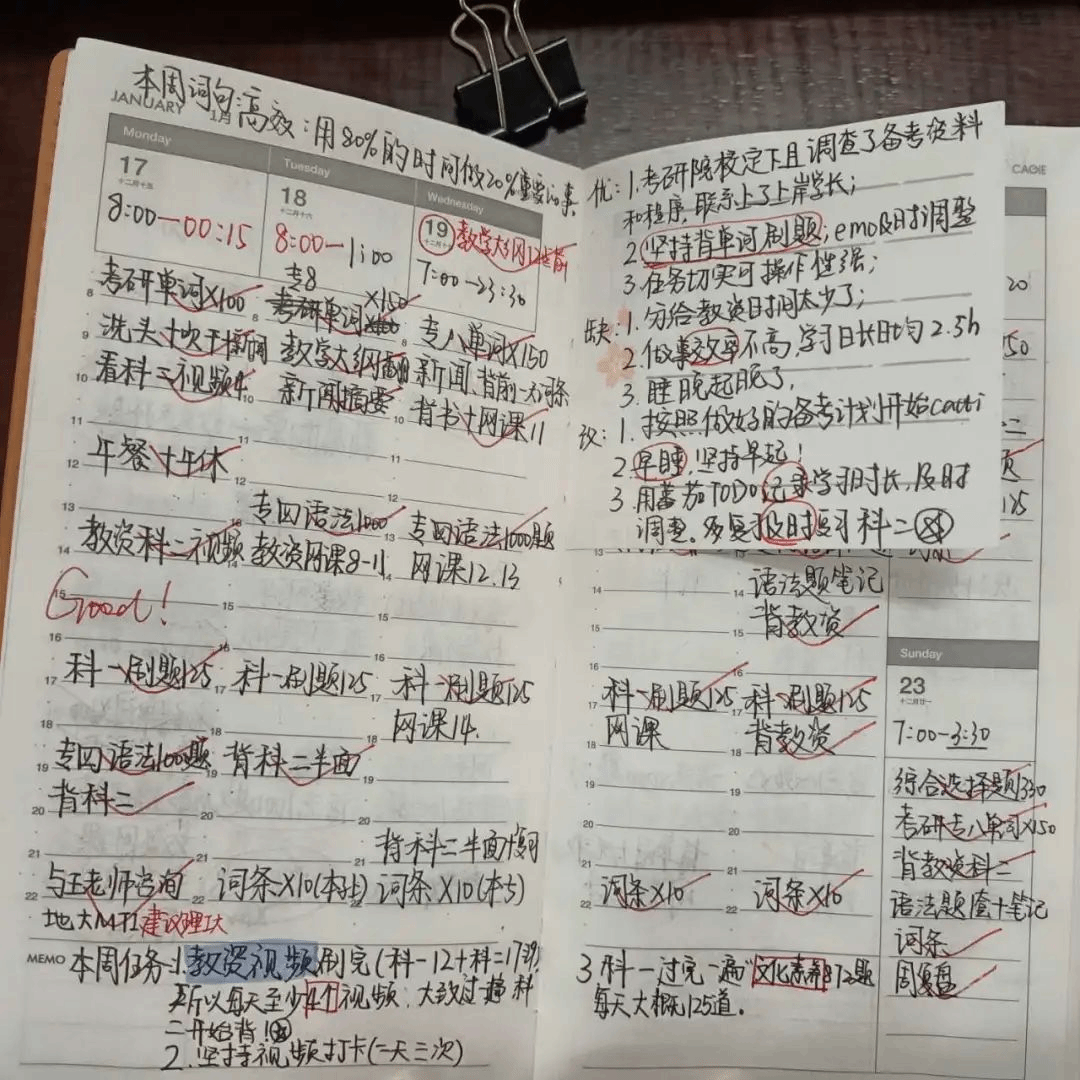 本周词句高效：用80%的时间做20%重要的事
JANUARY 1月
Monday
17
十二月十五
8:00—00:15
考研单词×100
洗头+吹干+新闻
看科三视频4
午餐+午休
教资科二视频
Good!
科一刷题125
专四语法1000题
背科二
与王老师咨询
地大MTI建议理工大
Tuesday
18
十二月十六
8:00—1:00
专8
考研单词×150
教学大纲
新闻摘要
专四语法1000
教资网课8-11
科一刷题125
背科二半面
词条×10(本站)
Wednesday
19
十二月十七
教学大纲
7:00—23:30
专八单词×150
新闻、背前一天词条
背书+网课11
专四语法1000题
网课12.13
科一刷题125
网课14.
背科二半面+复习
词条×10(本5)
MEMO 本周任务1.教资视频刷完(科一12+科二17
所以每天至少4个视频：大致过一遍科
二开始背!
2.坚持视频打卡(一天三次)
CAGIE
优：1.考研院校定下且调查了备考资料
和程序，联系上了上岸学长；
2.坚持背单词刷题；emo及时调整
3.任务切实可操作性强；
缺：1.分给教资时间太少了；
2.做事效率不高，学习日长日均2.5h
3.睡晚起晚了，
改：1.按照做好的备考计划开始
2.早睡，坚持早起！
3.用番茄TODO记录学习时长，及时
调整。多复习及时复习科二
科一刷题125
网课
词条×10
语法题笔记
背教资
科一刷题125
背教资
词条×10
3.科一过完一遍“文化素养”872题
每天大概125道。
Sunday
23
十二月廿一
7:00—3:30
综合选择题1330
考研专八单词×150
背教资科二
语法题查+笔记
词条
周复盘